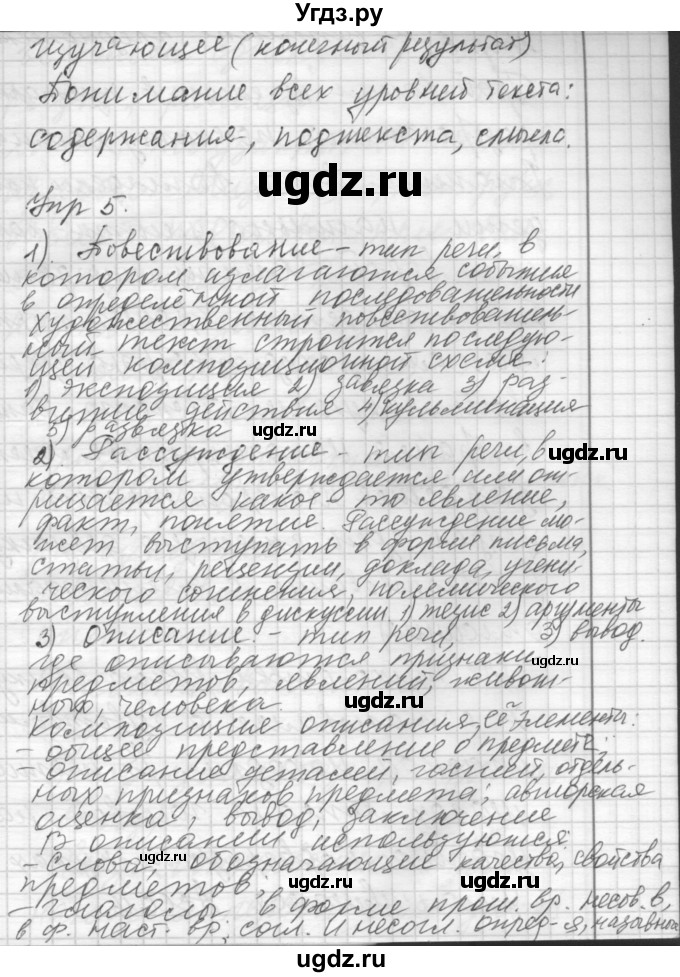 Угдз.ру
изучающее (конечный результат)
Понимание всех уровней текста:
содержания, подтекста, смысла.
ugdz.ru
Упр 5.
1). Повествование – тип речи, в
котором излагаются события
в определённой последовательности
художественный повествователь-
ный текст строится последую-
щей композиционной схеме:
1) экспозиция 2) завязка 3) раз-
витие действия 4) кульминация
5) развязка
ugdz.ru
2) Рассуждение – тип речи, в
котором утверждается или от-
рицается какое-то явление,
факт, понятие. Рассуждение мо-
жет выступать в форме письма,
статьи, рецензии, доклада, учени-
ческого сочинения, полемического
выступления в дискуссии. 1) тезис 2) аргументы
3) Описание – тип речи, 3) вывод.
где описываются признаки
предметов, явлений, живот-
ных, человека.
ugdz.ru
Композиция описания, её элементы:
– общее представление о предмете;
– описание деталей, частей, отдель-
ных признаков предмета; авторская
оценка, вывод, заключение
В описании используются:
– слова, обозначающие качества, свойства
предметов;
ugdz.ru
ugdz.ru
– глаголы в форме прош. вр. несов. в,
в ф. наст. вр; согл. и несогл. опред-я, назывные